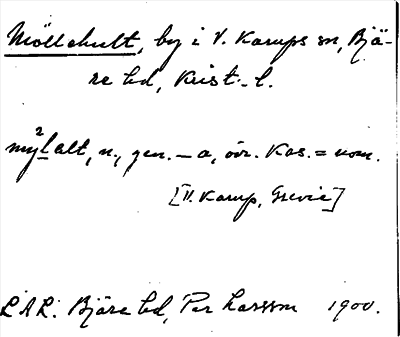 Möllehult, by i V. Karups sn, Bjä-
re hd, Krist. l.
my²lalt, n., gen. -a, övr. kas. = nom.
[V. Karup, Grevie]
LAL. Bjäre hd, Per Larsson 1900.